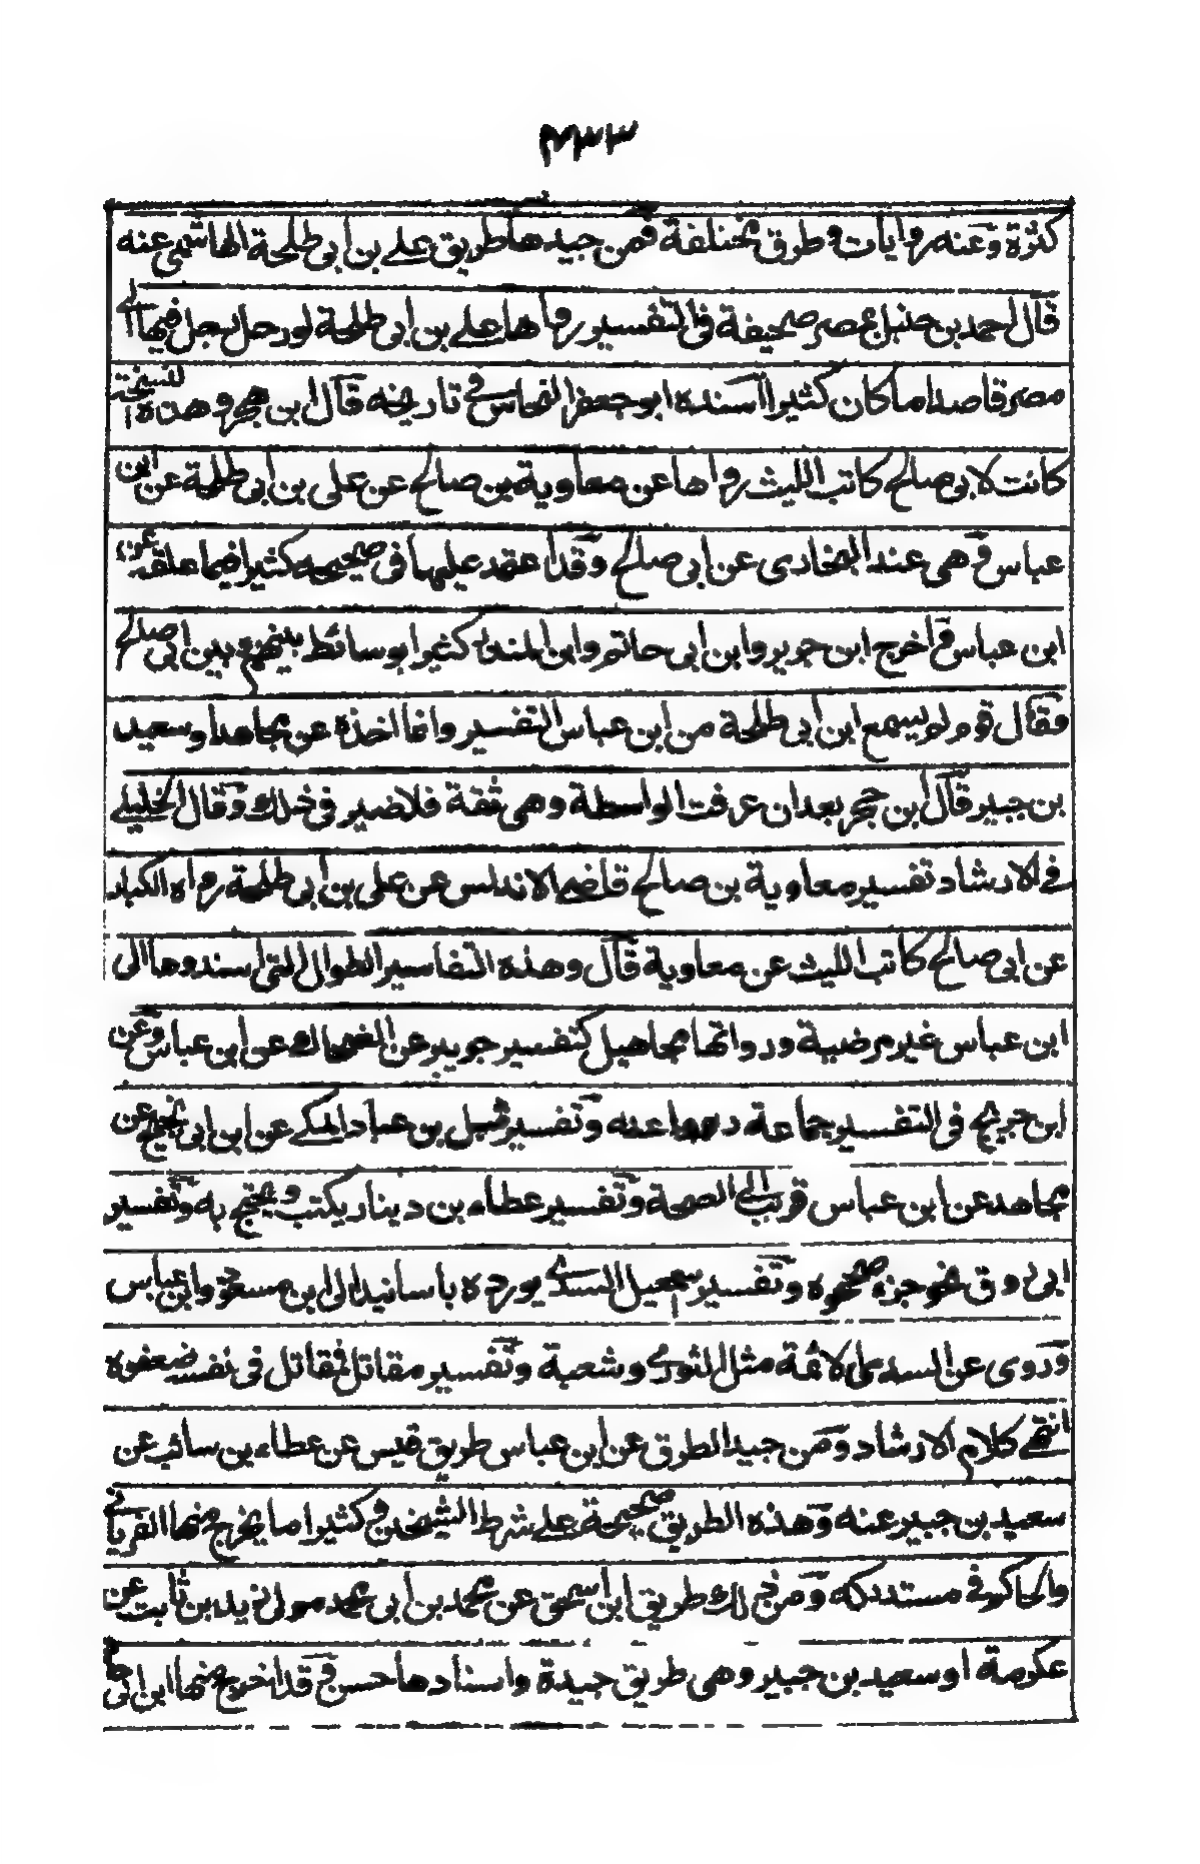 ٤٣٣
كثرة وعنه روايات وطرق مختلفة فمن جيدها طريق علي بن ابي طلحة الهاشمي عنه
قال احمد بن حنبل بمصر صحيفة في التفسير رواها علي بن ابي طلحة لو رحل رجل فيها الى
مصر قاصدا ما كان كثيرا اسنده ابو جعفر النحاس في تاريخه قال ابن حجر وهذه النسخة
كانت لابي صالح كاتب الليث رواها عن معاوية بن صالح عن علي بن ابي طلحة عن ابن
عباس وهي عند البخاري عن ابي صالح وقد اعتمد عليها في صحيحه كثيرا فيما علقه عن
ابن عباس واخرج ابن جرير وابن ابي حاتم وابن المنذر كثيرا بوسائط بينهم وبين ابي صالح
فقال قوم لم يسمع ابن ابي طلحة من ابن عباس التفسير وانما اخذه عن مجاهد او سعيد
بن جبير قال ابن حجر بعد ان عرفت الواسطة وهي ثقة فلا ضير في ذلك وقال الخليلي
في الارشاد تفسير معاوية بن صالح قاضي الاندلس عن علي بن ابي طلحة رواه الكبار
عن ابي صالح كاتب الليث عن معاوية قال وهذه التفاسير الطوال التي اسندوها الى
ابن عباس غير مرضية ورواتها مجاهيل كتفسير جويبر عن الضحاك عن ابن عباس وعن
ابن جريج في التفسير جماعة رووا عنه وتفسير شبل بن عباد المكي عن ابن ابي نجيح عن
مجاهد عن ابن عباس قريب الى الصحة وتفسير عطاء بن دينار يكتب ويحتج به وتفسير
ابي روق نحو جزء صححوه وتفسير اسمعيل السدي يورده باسانيد الى ابن مسعود وابن عباس
وروى عن السدي الائمة مثل الثوري وشعبة وتفسير مقاتل فمقاتل في نفسه ضعفوه
انتهى كلام الارشاد ومن جيد الطرق عن ابن عباس طريق قيس عن عطاء بن سائب عن
سعيد بن جبير عنه وهذه الطريق صحيحة على شرط الشيخين وكثيرا ما يخرج منها الفريابي
والحاكم في مستدركه ومن ذلك طريق ابن اسحق عن محمد بن ابي محمد مولى زيد بن ثابت عن
عكرمة او سعيد بن جبير وهي طريق جيدة واسنادها حسن وقد اخرج منها ابن ابي